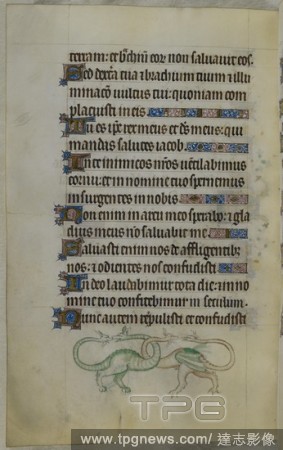 terram: et brchiũ eor non saluauit eos.
Sed dext̃a tua ⁊ brachium tuum ⁊ illu
minacõ uultus tui: quoniam com
placuisti in eis
Tu es ip̃e rex meus et d̃s meus: qui
mandas salutes iacob.
In te inimicos nr̃os uentilabimus
cornu: et in nomine tuo spernemus
insurgentes in nobis
Non enim in arcu meo sperabo: ⁊ gla
dius meus nõ saluabit me
Saluasti enim nos de affligentib;
nos: ⁊ odientes nos confudisti
In deo laudabimur tota die: in no
mine tuo confitebimur in seculum.
Nunc autem repulisti et confudisti
TPG
www.tpgnews.com / 達志影像